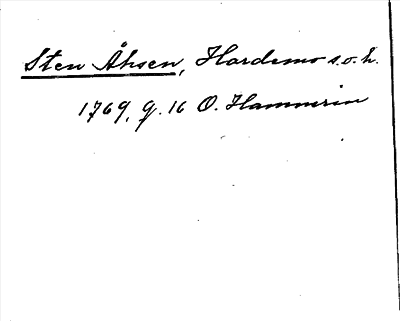 Sten Åksen, Hardemo s.o.h.
1769, g. 16 O. Hammarin